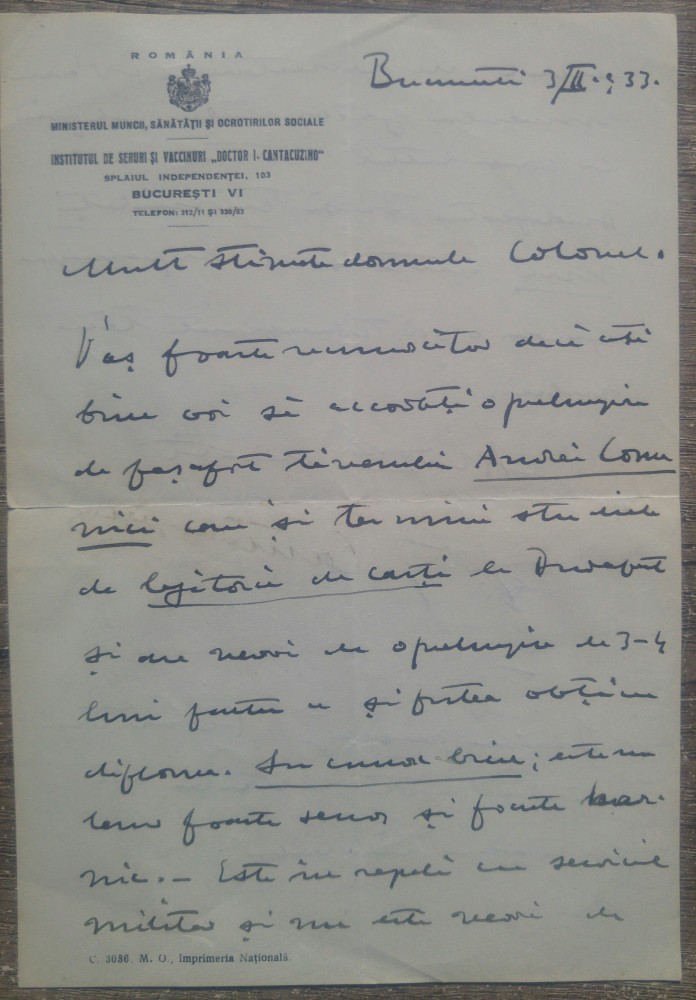 ROMÂNIA
MINISTERUL MUNCII, SĂNĂTĂȚII ȘI OCROTIRILOR SOCIALE
INSTITUTUL DE SERURI ȘI VACCINURI „DOCTOR I. CANTACUZINO“
SPLAIUL INDEPENDENȚEI, 103
BUCUREȘTI VI
TELEFON: 312/11 ȘI
București 3/III. 933.
Mult stimate domnule Colonel.
V'aș foarte recunoscător dacă ați
bine voi să accordați o prelungire
de pașaport tânărului Andrei
care își termină studiile
de legătorie de cărți la Budapest
și are nevoi de o prelungire de 3-4
luni pentru a și putea obține
diploma. Îl cunosc bine; este un
om foarte serios și foarte har-
nic. — Este în regulă cu serviciul
militar și nu este nevoi de
C. 3086. M. O., Imprimeria Națională.